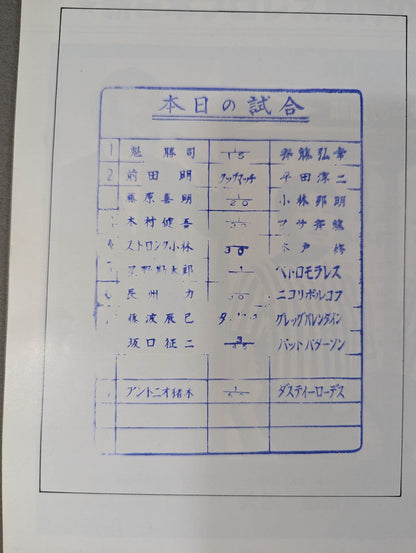 本日の試合
1 魁 勝司 1/15 斉藤弘幸
2 前田 明 タッグマッチ 平田淳二
藤原喜明 1/20 小林邦明
木村健吾 マサ斉藤
4 ストロング小林 30 木戸 修
星野勘太郎 1 ペドロモラレス
長州 力 ニコリボルコフ
藤波辰巳 グレッグバレンタイン
坂口征二 3/45 パットパターソン
アントニオ猪木 1/60 ダスティーローデス